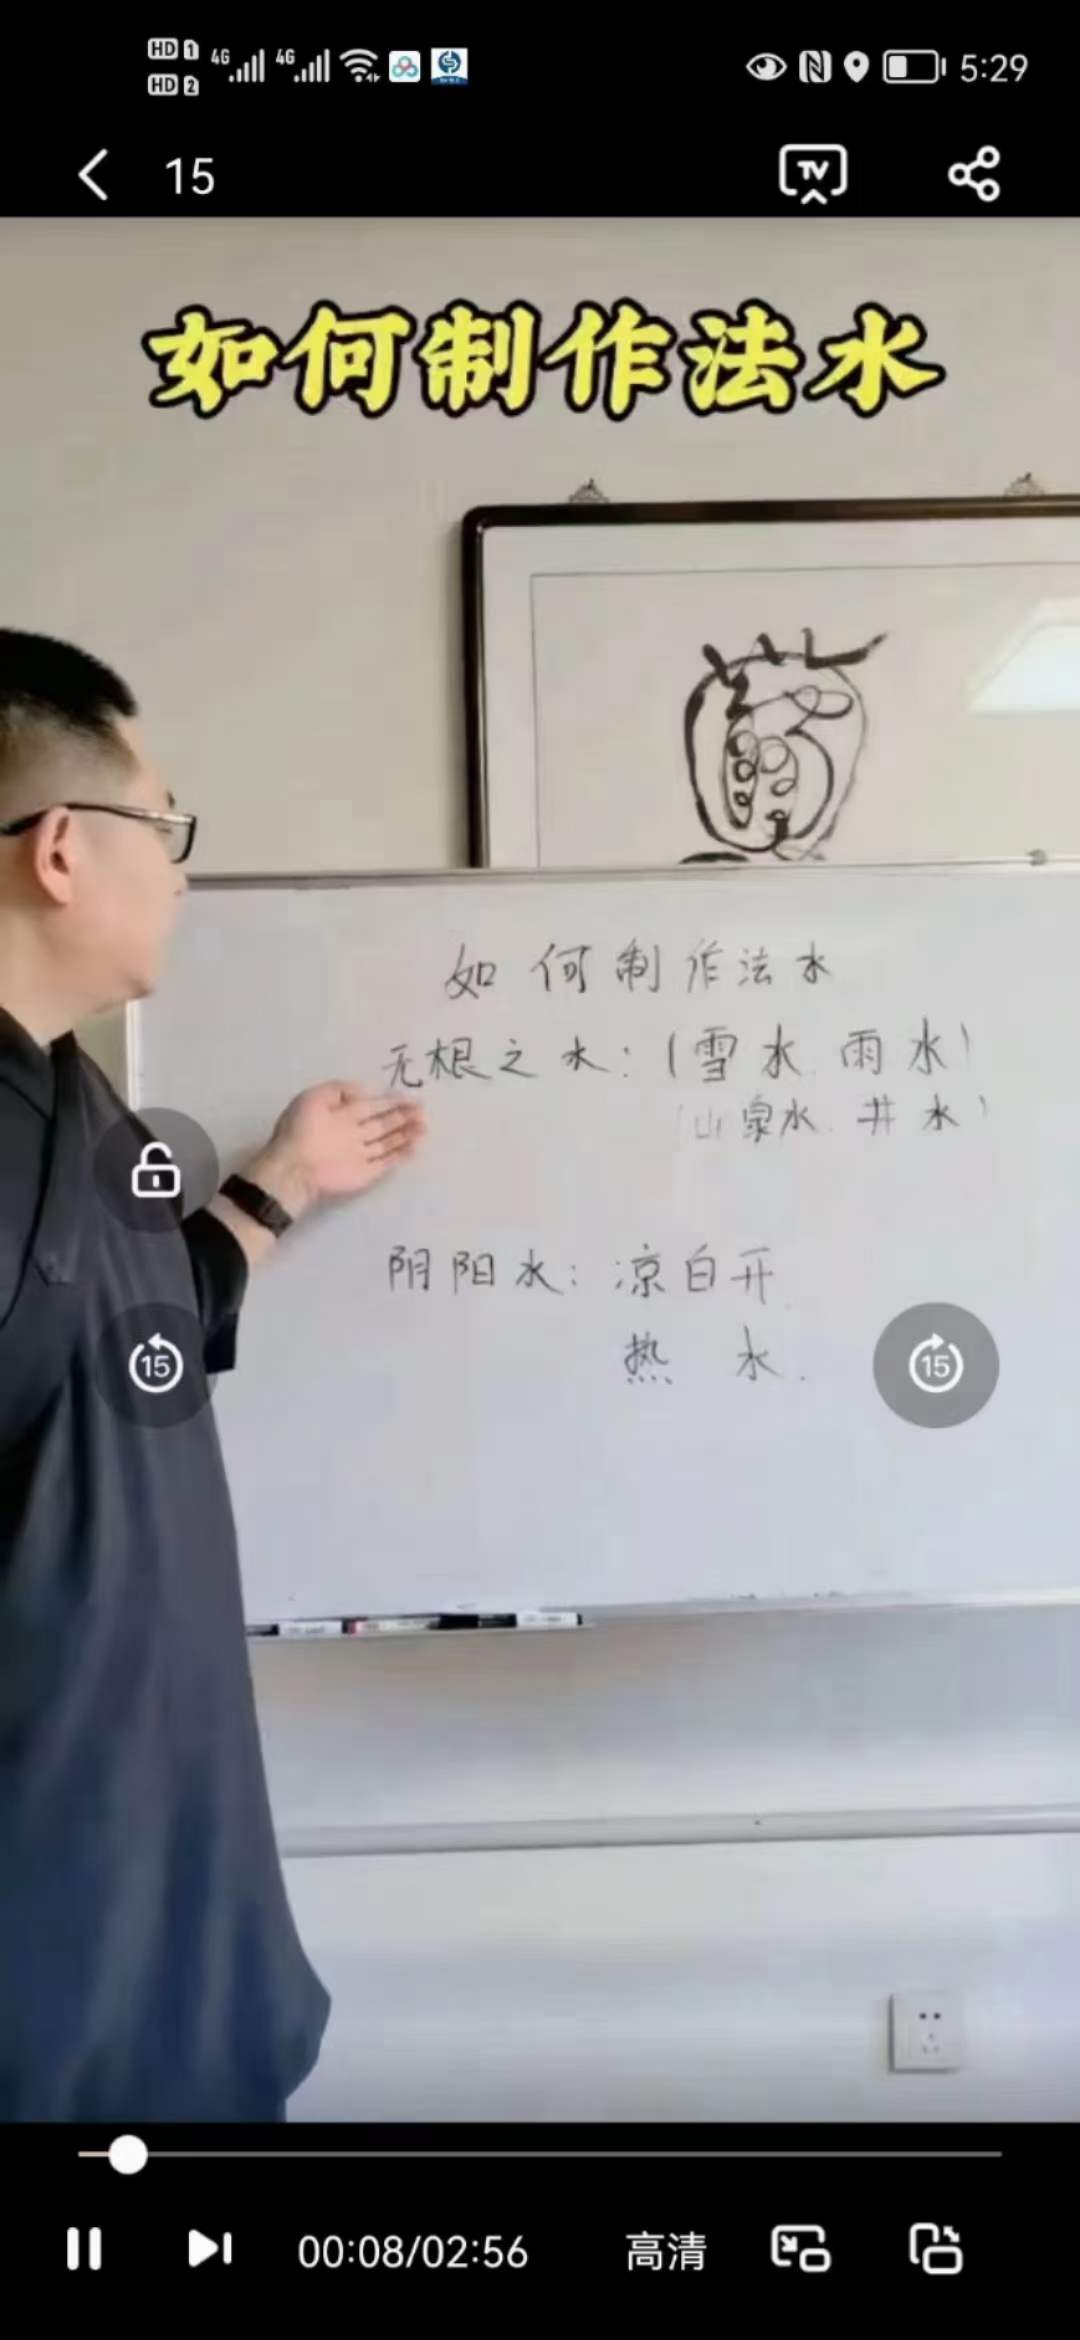 HD 1 4G 4G 5:29
HD 2
15 TV
如何制作法水
如何制作法水
无根之水：（雪水 雨水）
（山泉水 井水）
阴阳水：凉白开
热水.
15 15
00:08/02:56 高清